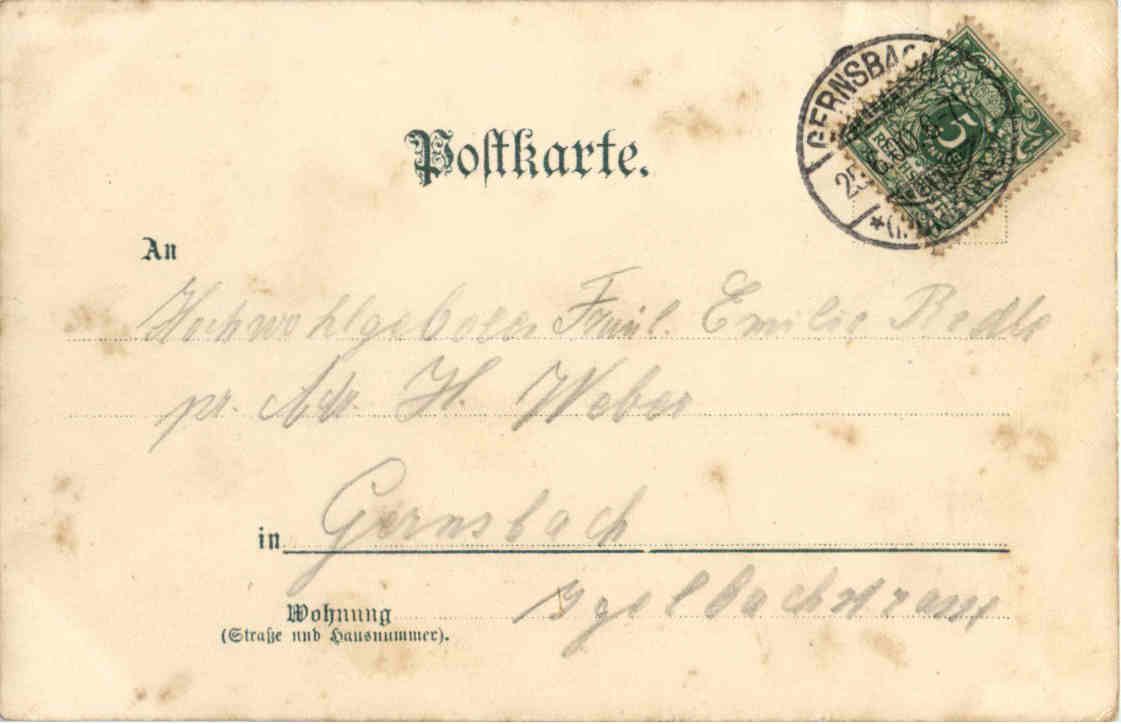 Postkarte.
GERNSBACH
5
An
Hochwohlgeboren Fräul. Emilie
pr. Adr. H. Weber
in Gernsbach
Igelbachstrasse
Wohnung
(Straße und Hausnummer).